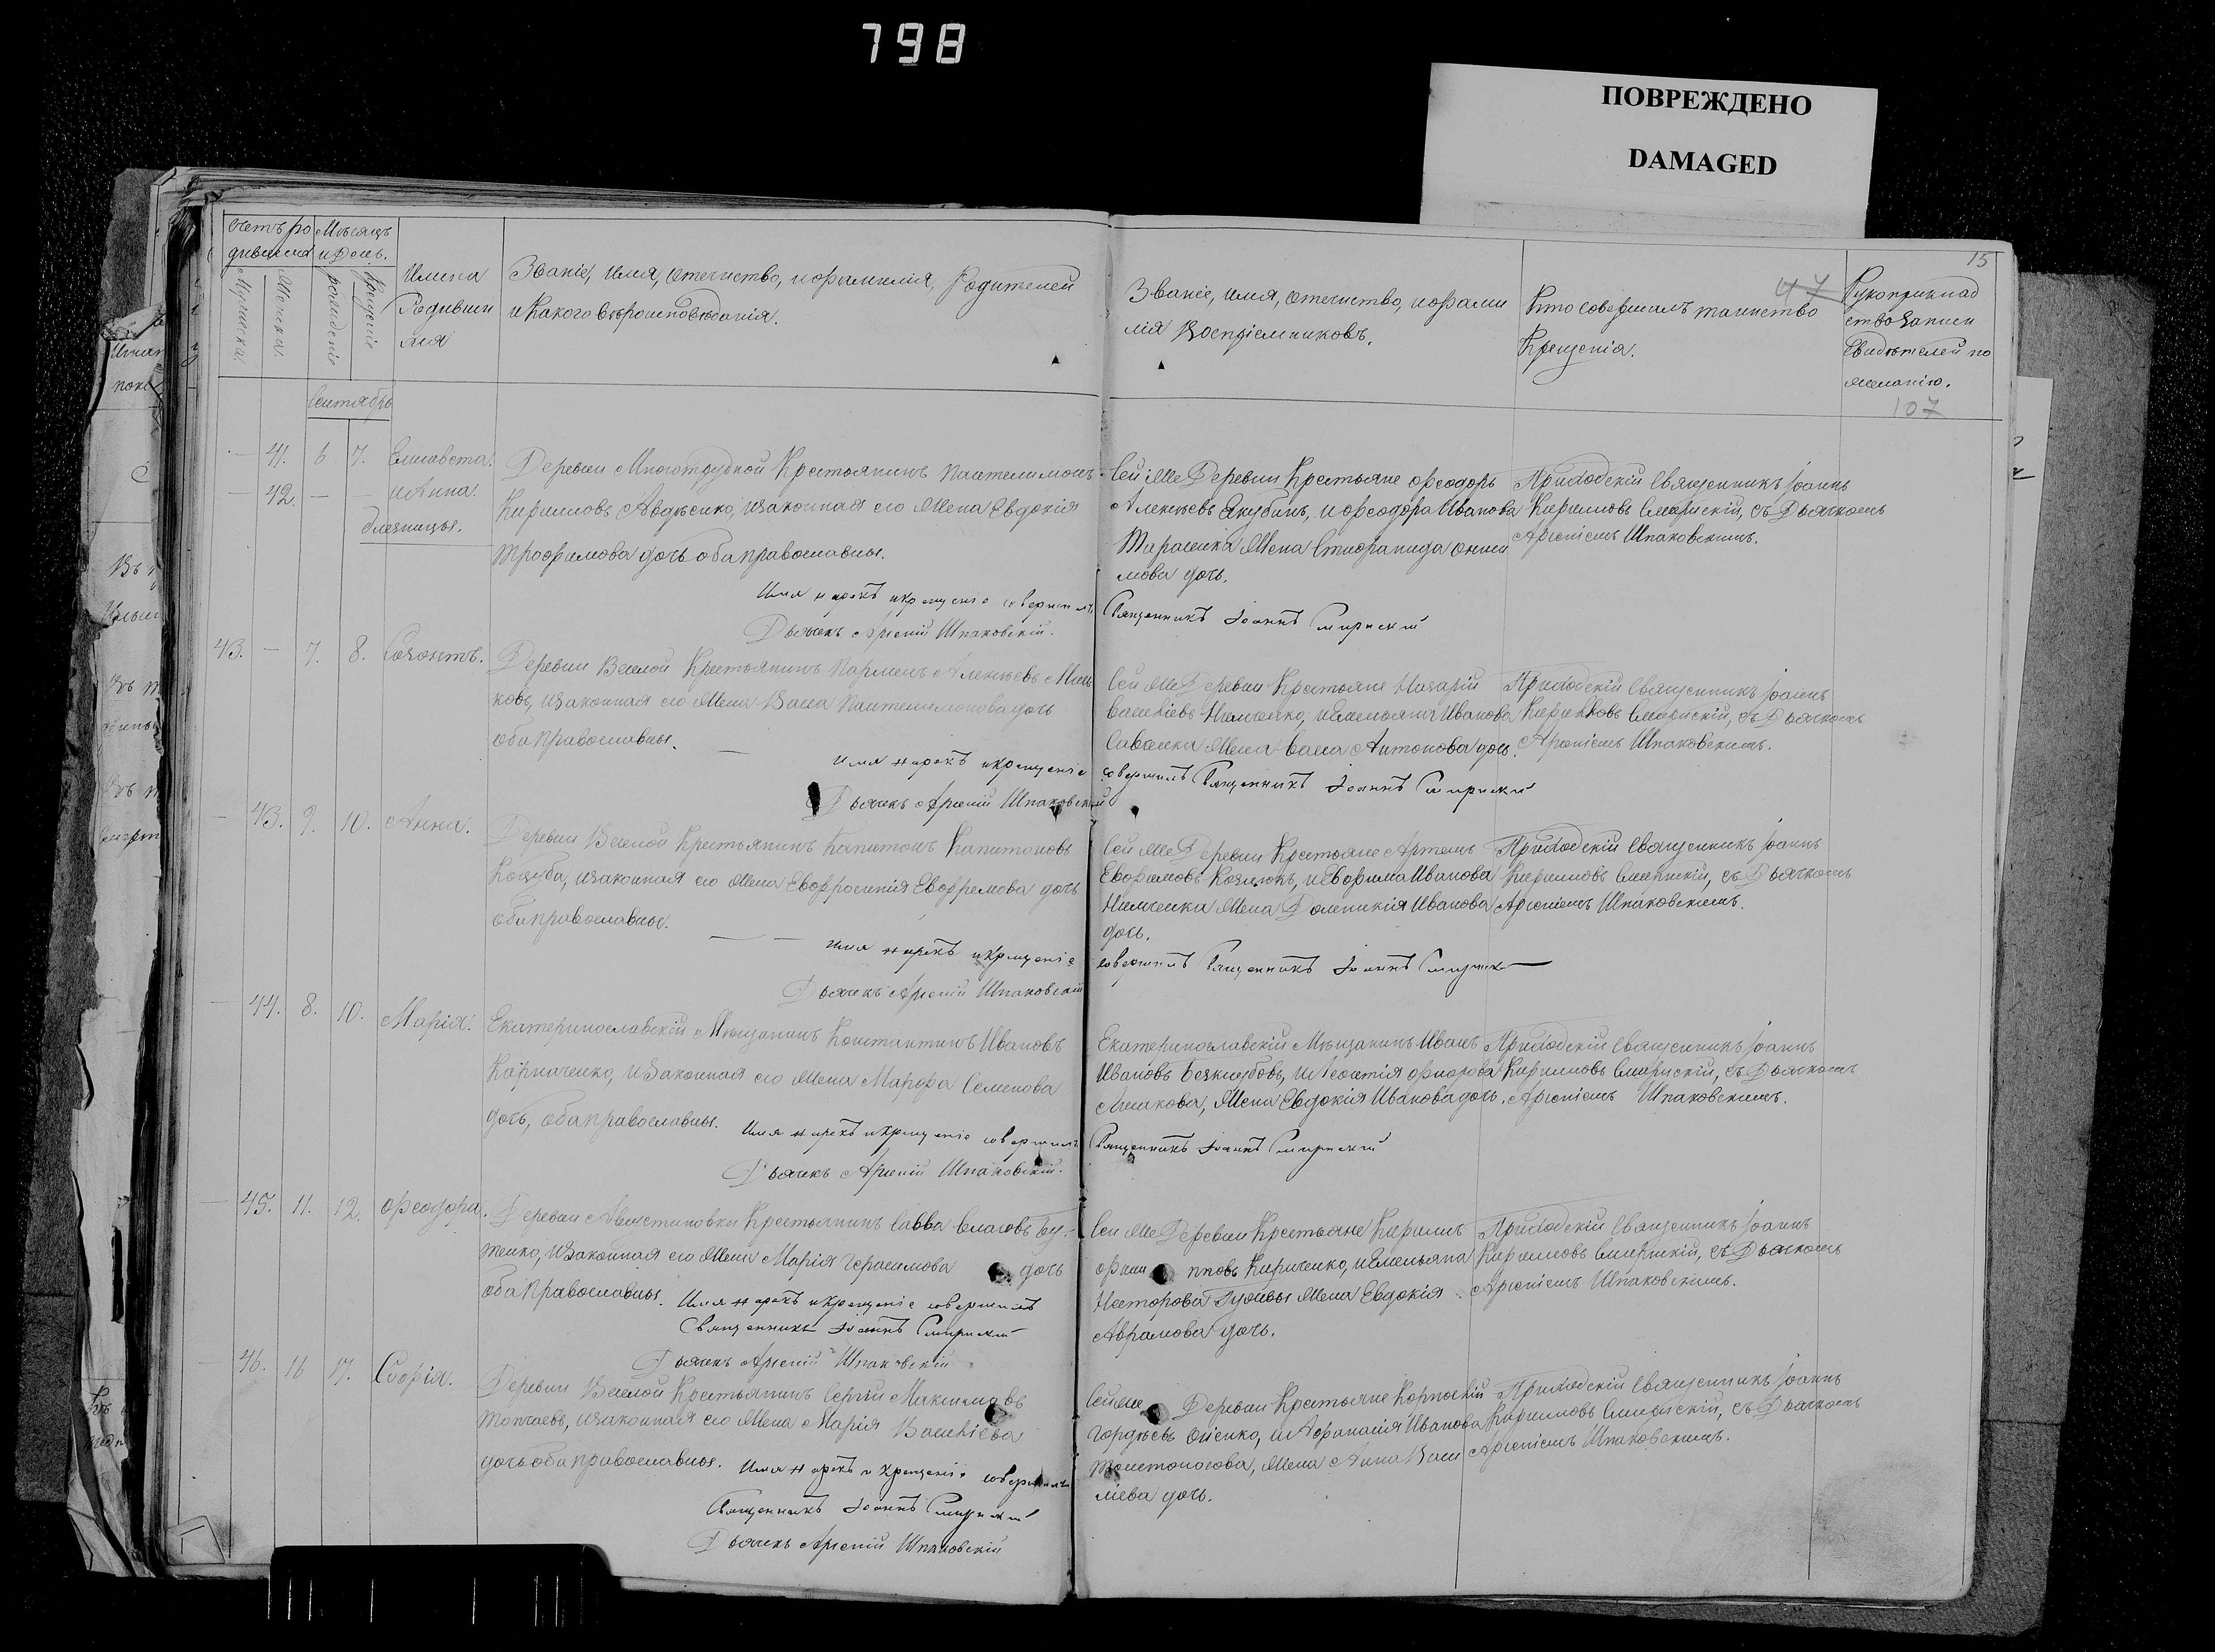 798
ПОВРЕЖДЕНО
DAMAGED
15
47
107
Счетъ ро Мѣсяцъ
дившихся и День.
Мужеска. Женска. рожденіе Крещеніе
Имена
Родивши
хся
Званіе, имя, отечество, и фамилія, Родителей
и Какого вѣроисповѣданія.
Званіе, имя, отечество, и фами
лія Воспріемниковъ.
Кто совершалъ таинство
Крещенія.
Рукоприклад
ство Записи
свидѣтелей по
желанію.
Сентябрь
41. 6 7. Елисавета.
42. и Анна.
близницы.
Деревни Многотрудной Крестьянинъ Пантелимонъ
Кирилловъ Авдѣенко, и законная его Жена Евдокія
Трофимова дочь оба православны.
Сей же Деревни Крестьяне Феодоръ
Алексѣевъ Якубинъ, и Феодора Иванова
Тарасенка Жена Стефанида
мова дочь.
Приходскій Священникъ Іоаннъ
Кирилловъ Смирнскій, съ Дьячкомъ
Арсеніемъ Шпаковскимъ.
Имя нарекъ и крещеніе совершилъ Священникъ Іоаннъ Смирнскій
Дьячекъ Арсеній Шпаковскій.
43. 7. 8. Созонтъ.
Деревни Веселой Крестьянинъ Парменъ Алексѣевъ
ковъ, и законная его Жена Васса Пантелимонова дочь
оба православны.
Сей же Деревни Крестьяне Назарій
Савченка Жена Антонова дочь.
Приходскій Священникъ Іоаннъ
Кирилловъ Смирнскій, съ Дьячкомъ
Арсеніемъ Шпаковскимъ.
имя нарекъ и крещеніе совершилъ Священникъ Іоаннъ Смирнскій
Дьячекъ Арсеній Шпаковскій
43. 9. 10. Анна.
Деревни Веселой Крестьянинъ Капитонъ Капитоновъ
Коцуба, и законная его Жена Евфросинія Евфремова дочь
оба православны.
Сей же Деревни Крестьяне Артемъ
Евфимовъ и Евфима Иванова
Жена Домникія Иванова
дочь.
Приходскій Священникъ Іоаннъ
Кирилловъ Смирнскій, съ Дьячкомъ
Арсеніемъ Шпаковскимъ.
имя нарекъ и крещеніе совершилъ Священникъ Іоаннъ Смирнск
Дьячекъ Арсеній Шпаковскій
44. 8. 10. Марія.
Екатеринославскій Мѣщанинъ Константинъ Ивановъ
Карпаченко, и законная его Жена Марфа Семенова
дочь, оба православны.
Екатеринославскій Мѣщанинъ Иванъ
Ивановъ и Леонтія
Жена Евдокія Иванова дочь.
Приходскій Священникъ Іоаннъ
Кирилловъ Смирнскій, съ Дьячкомъ
Арсеніемъ Шпаковскимъ.
Имя нарекъ и крещеніе совершилъ Священникъ Іоаннъ Смирнскій
Дьячекъ Арсеній Шпаковскій.
45. 11. 12. Феодора.
Деревни Августиновки Крестьянинъ Савва Власовъ Бу-
тенко, и законная его Жена Марія Герасимова дочь
оба православны.
Сей же Деревни Крестьяне Кириллъ
Фили пповъ Кириченко, и Емельяна
Несторова Жена Евдокія
Аврамова дочь.
Приходскій Священникъ Іоаннъ
Кирилловъ Смирнскій, съ Дьячкомъ
Арсеніемъ Шпаковскимъ.
Имя нарекъ и крещеніе совершилъ
Священникъ Іоаннъ Смирнскій
Дьячекъ Арсеній Шпаковскій
46. 16 17. Софія.
Деревни Веселой Крестьянинъ Сергій Максимовъ
Толчаевъ, и законная его Жена Марія Василіева
дочь оба православны.
Сей же Деревни Крестьяне Корнилій
Гордѣевъ и Афанасія Иванова
Толстоносова, Жена Анна Васи
ліева дочь.
Приходскій Священникъ Іоаннъ
Кирилловъ Смирнскій, съ Дьячкомъ
Арсеніемъ Шпаковскимъ.
Имя нарекъ и крещеніе совершилъ
Священникъ Іоаннъ Смирнскій
Дьячекъ Арсеній Шпаковскій